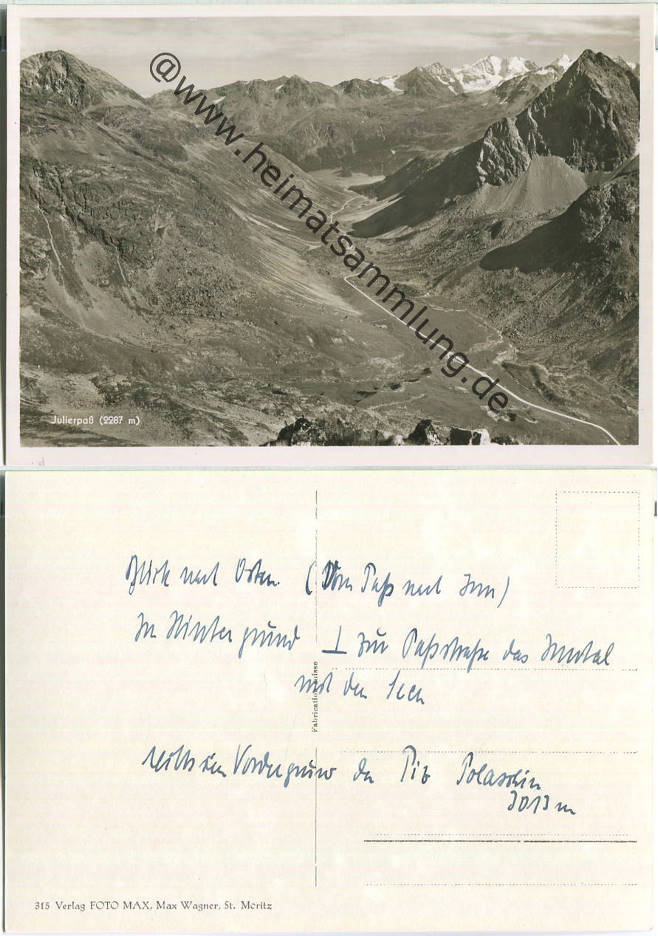 @www.heimatsammlung.de
Julierpaß (2287 m)
Blick nach Osten. (Vom Paß nach Inn)
Im Hintergrund ⊥ zur Paßstraße das Inntal
mit den Seen
rechts im Vordergrund der Piz Polaschin
3013 m
Fabrication Suisse
315 Verlag FOTO MAX, Max Wagner, St. Moritz